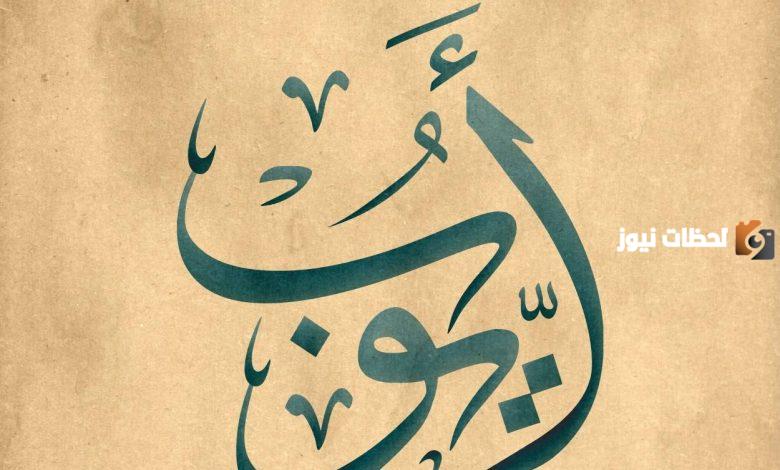 أَيُّوب
لحظات نيوز